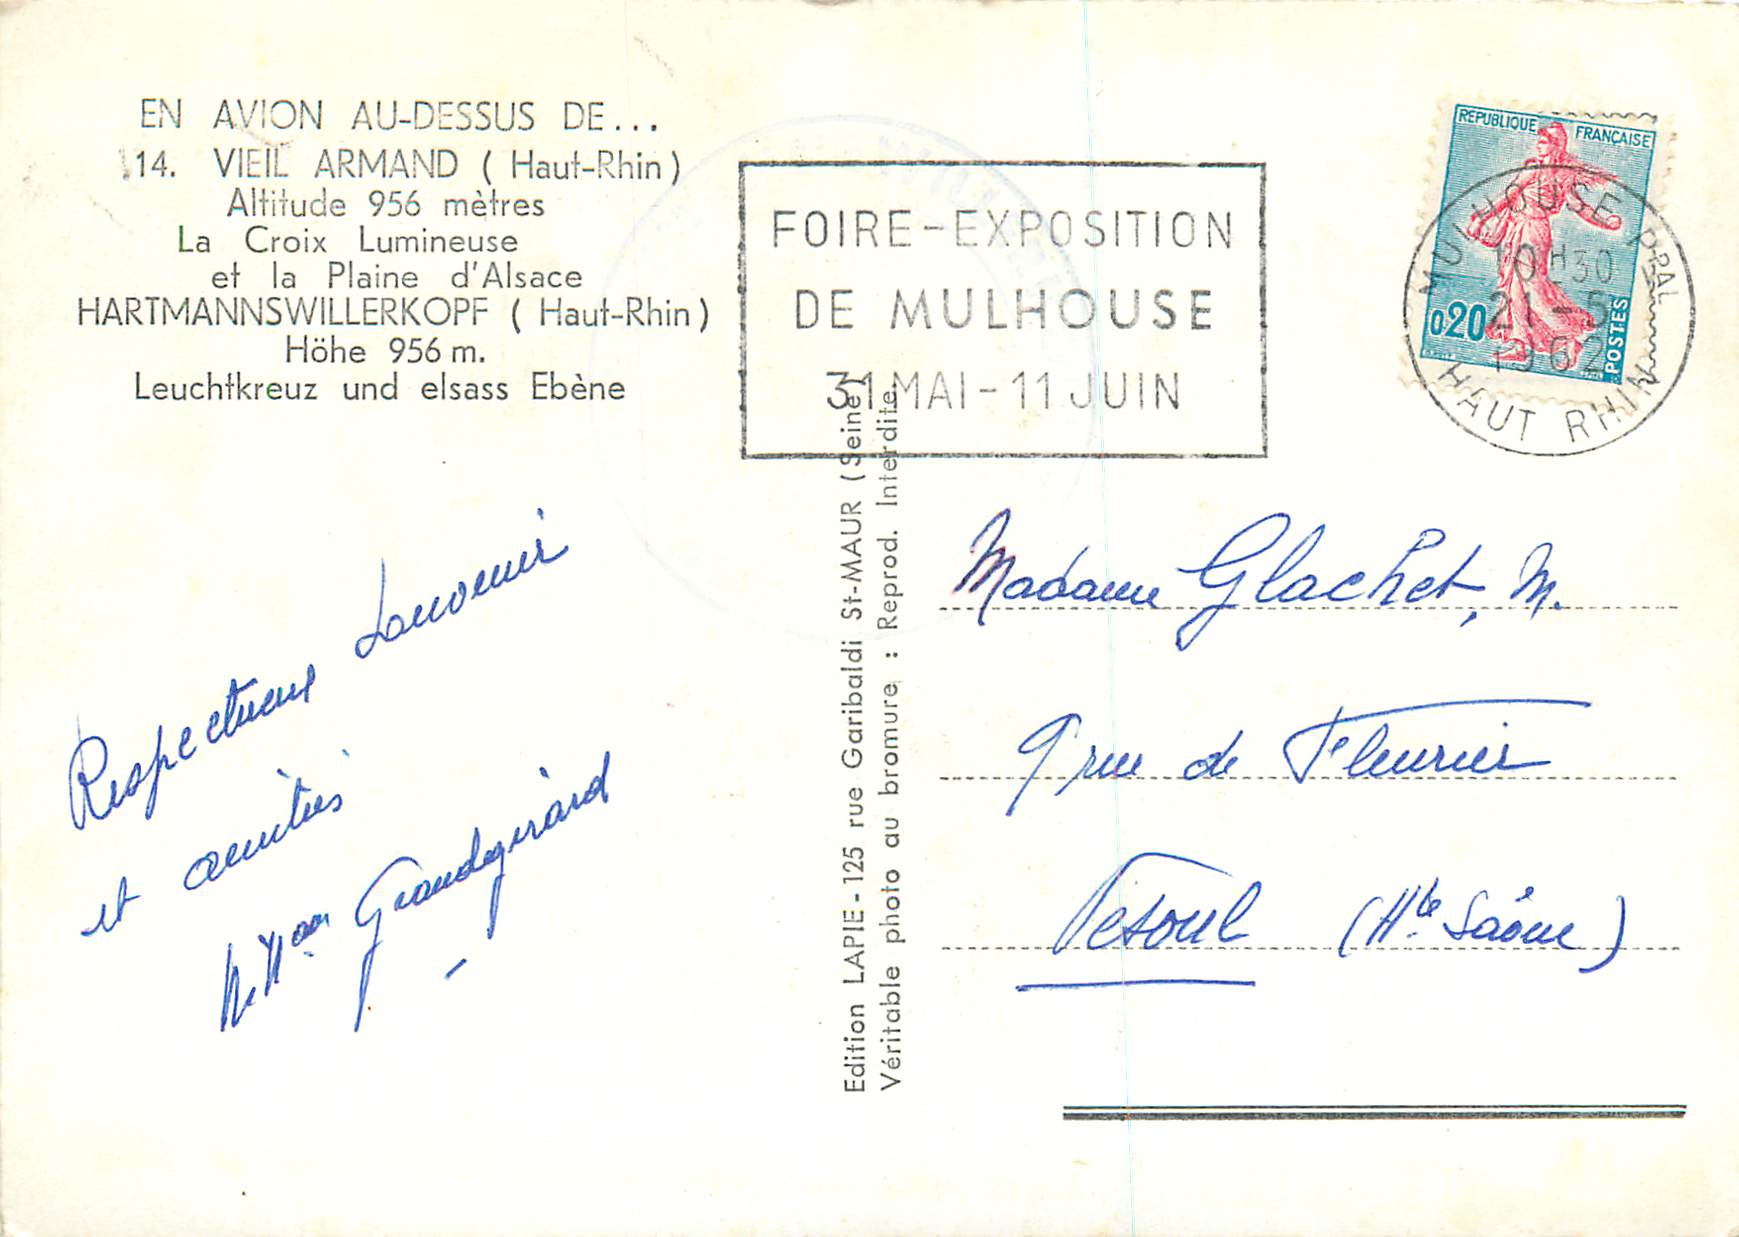 EN AVION AU-DESSUS DE...
14. VIEIL ARMAND ( Haut-Rhin )
Altitude 956 mètres
La Croix Lumineuse
et la Plaine d'Alsace
HARTMANNSWILLERKOPF ( Haut-Rhin )
Höhe 956 m.
Leuchtkreuz und elsass Ebène
FOIRE-EXPOSITION
DE MULHOUSE
31 MAI - 11 JUIN
REPUBLIQUE FRANÇAISE
0,20
POSTES
MULHOUSE PPAL
10H30
21-5
1962
HAUT RHIN
Respectueux Souvenir
et amitiés
Grandgirard
Edition LAPIE - 125 rue Garibaldi St-MAUR (Seine)
Véritable photo au bromure : Reprod. Interdite
Madame Glachet, M.
9 rue de Fleurier
Vesoul (Hte Saône)